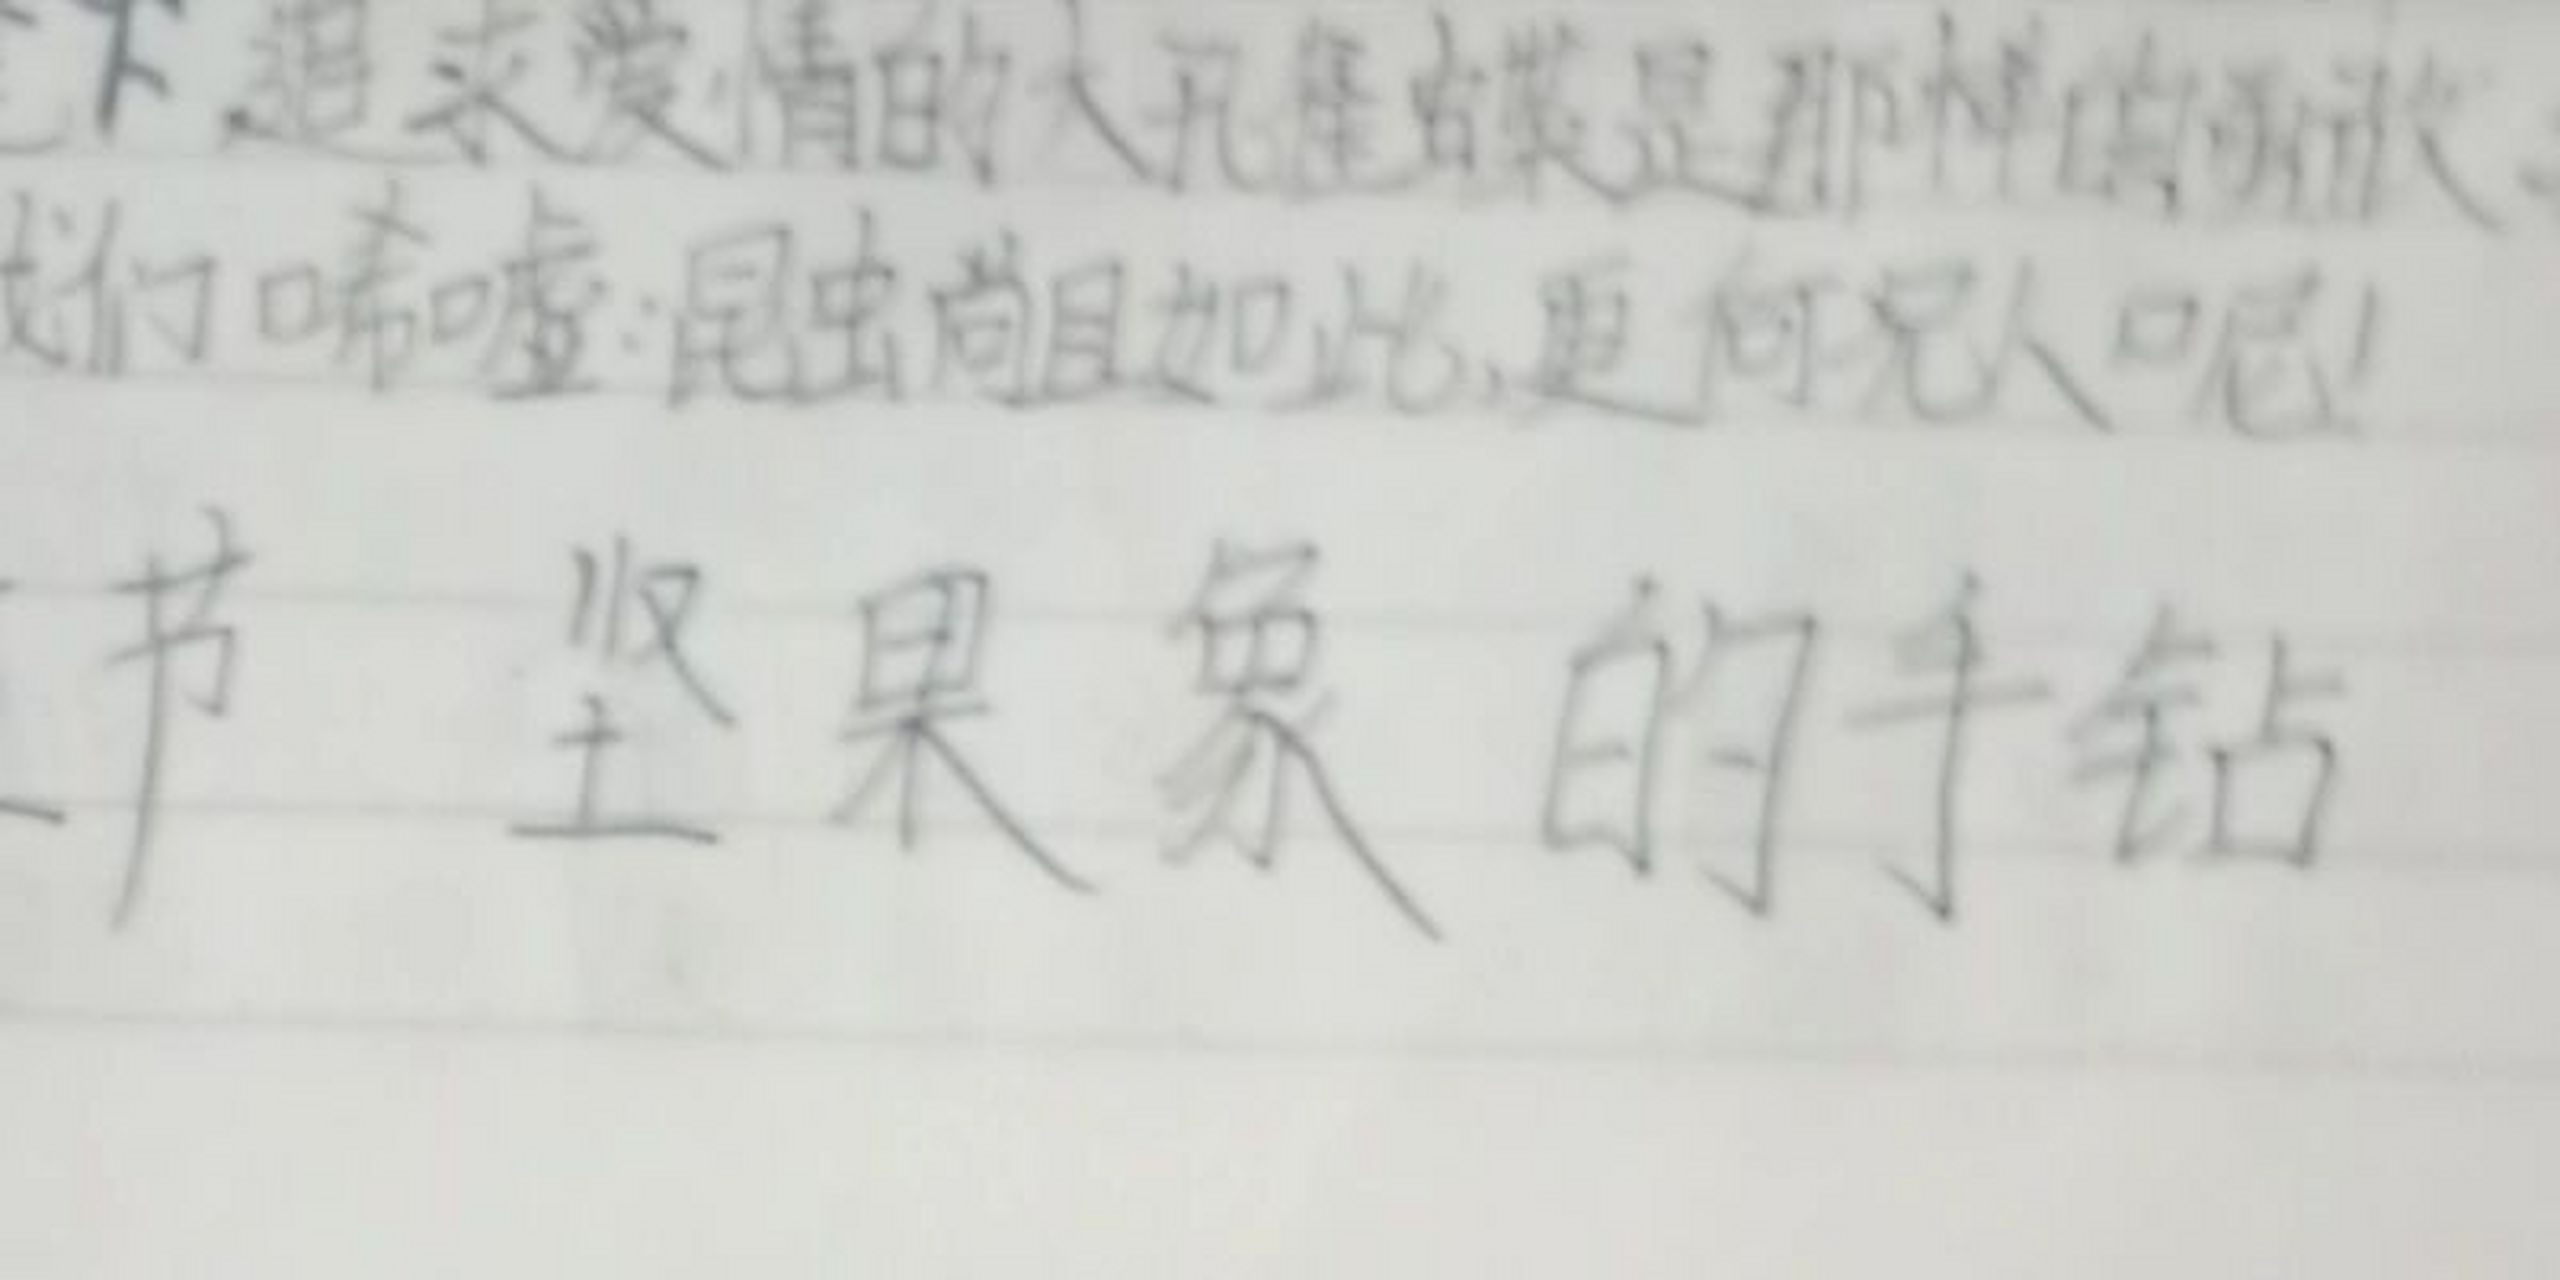 下追求爱情的大孔雀蝶是那样的
我们唏嘘:昆虫尚且如此,更何况人呢!
节 坚果象的手钻